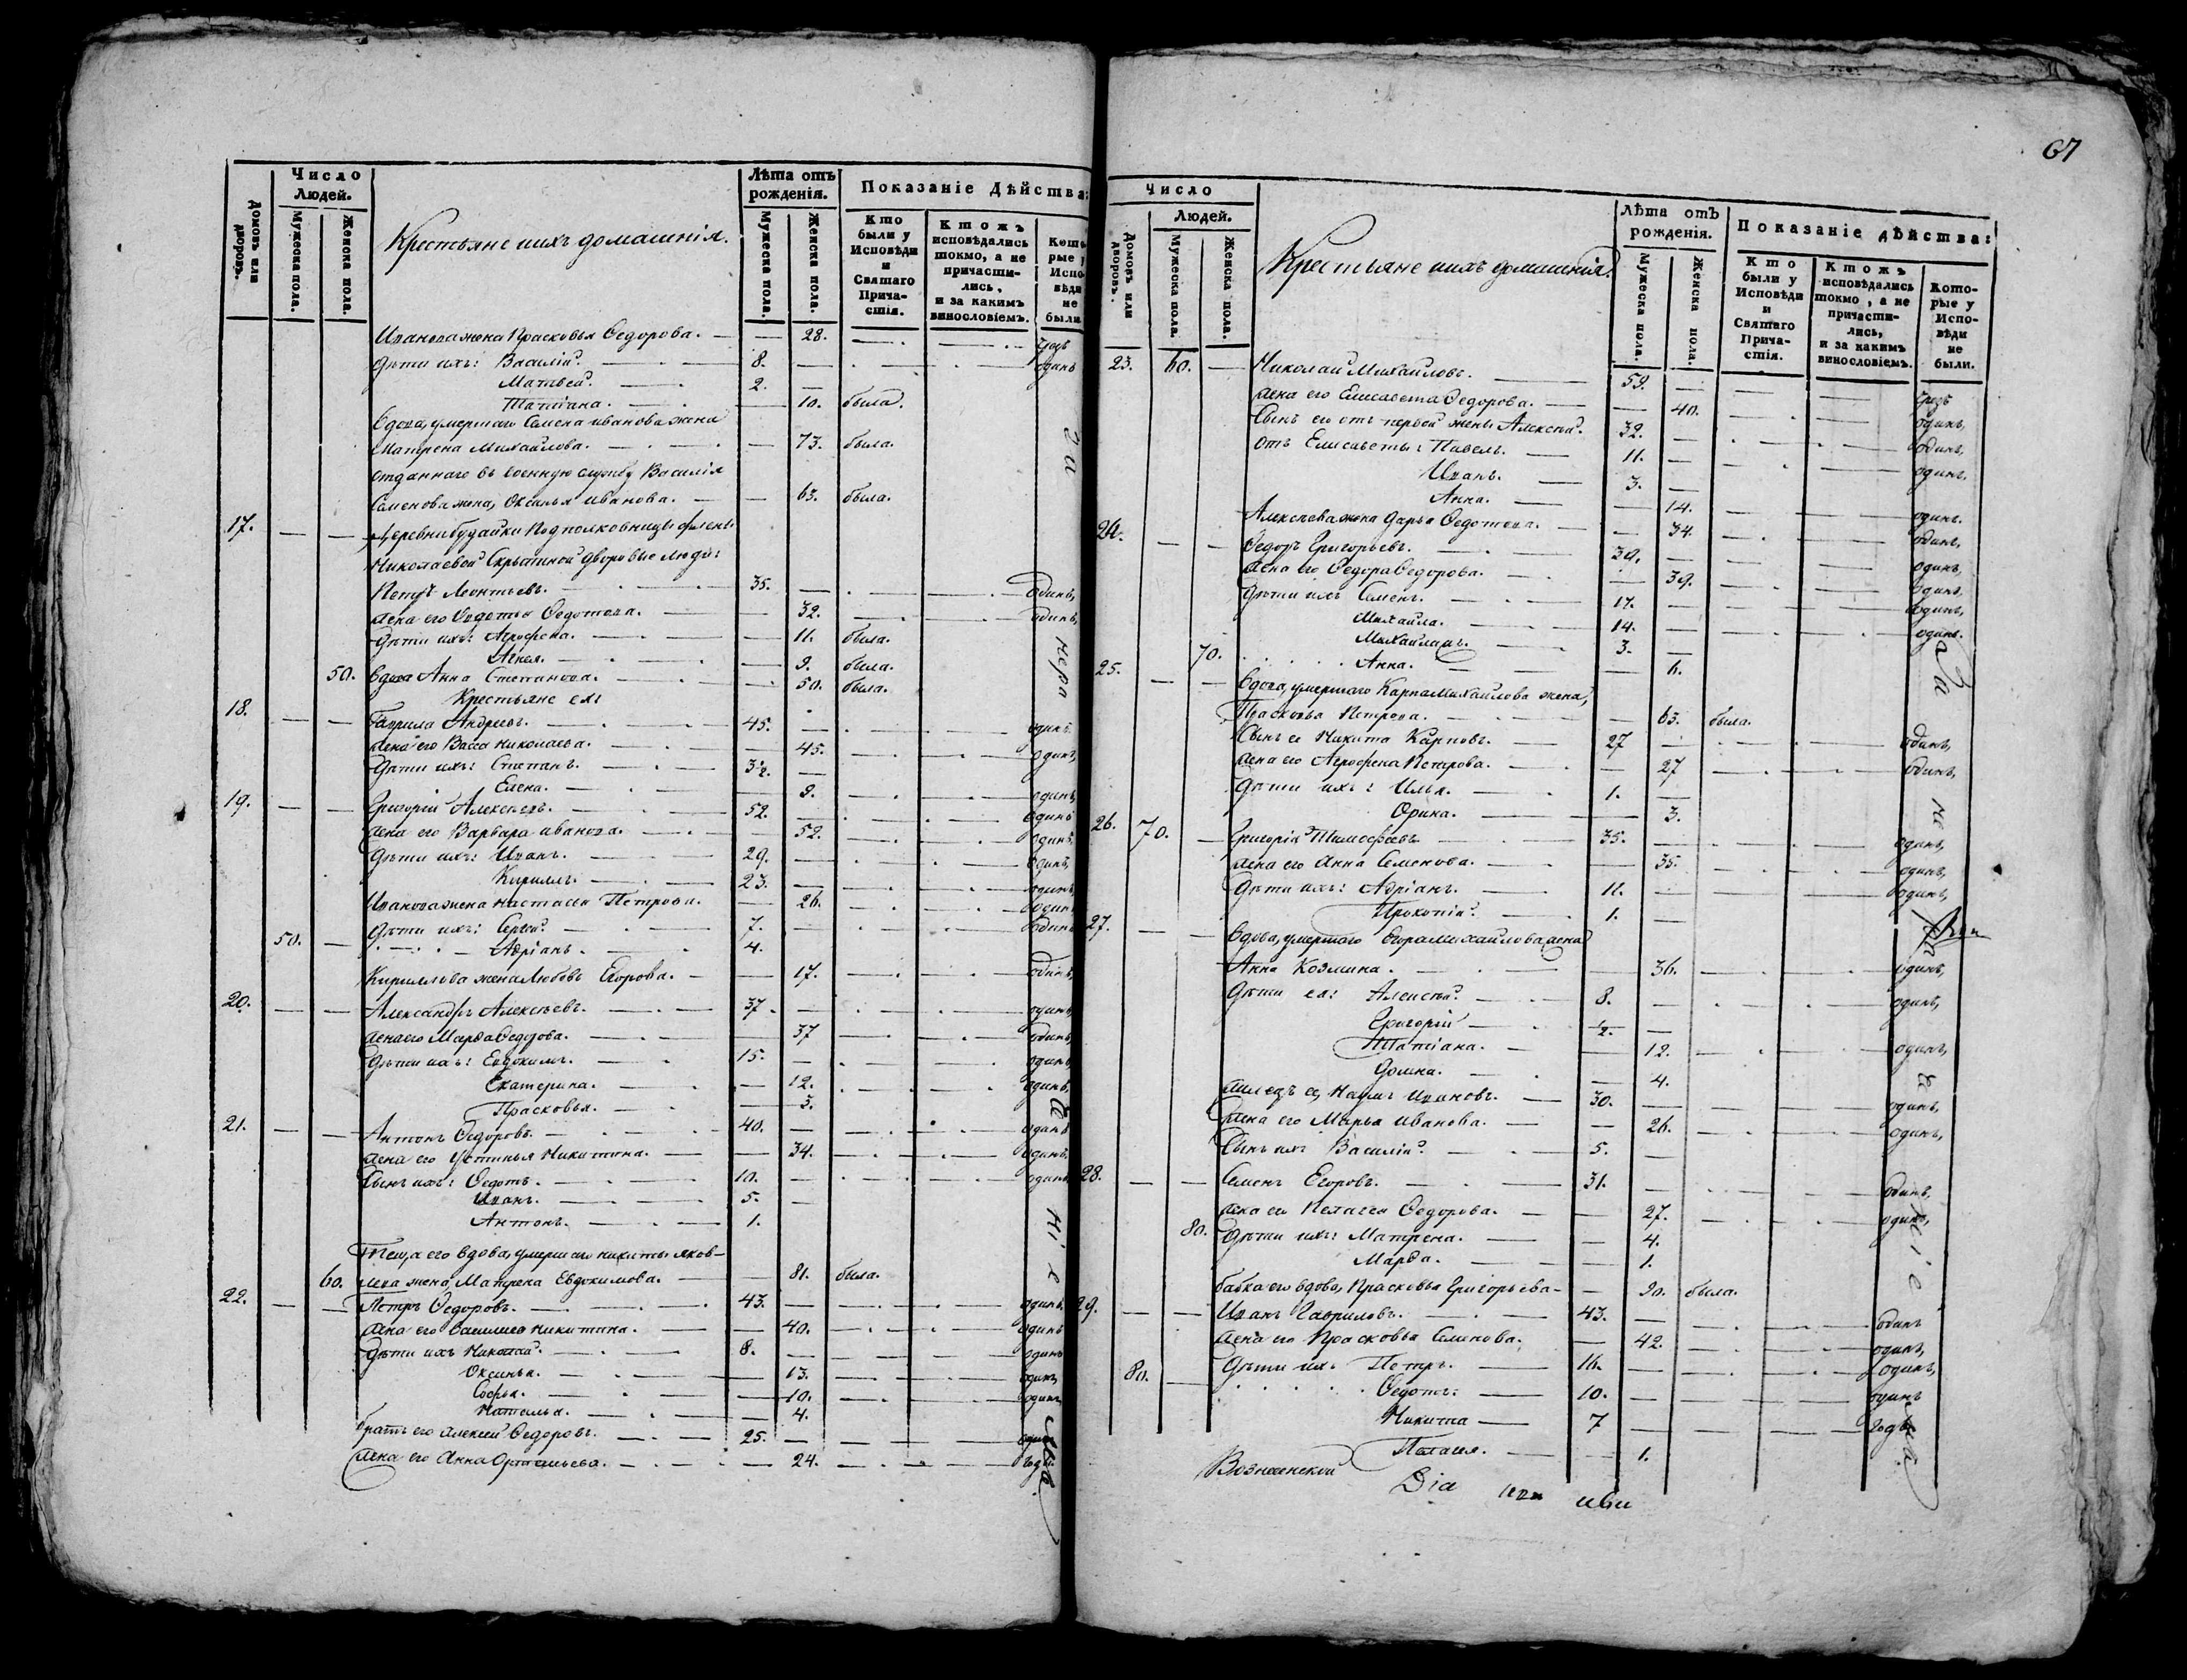 Число
Людей.
Домовъ или дворовъ.
Мужеска пола.
Женска пола.
Крестьяне ихъ домашнія.
Лѣта отъ рожденія.
Мужеска пола.
Женска пола.
Показаніе Дѣйства:
Кто были у Исповѣди и Святаго Причастія.
Ктожъ исповѣдались токмо, а не причастились, и за какимъ винословіемъ.
Которые у Исповѣди не были
Иванова жена Прасковья Ѳедорова. 28.
дѣти ихъ: Василій. 8. одинъ
Матвей. 2.
Татіана. 10. была.
Вдова, умершаго Семена Иванова жена
Матрена Михайлова. 73. была.
отданнаго въ военную службу Василія
Семенова жена, Оксинья Иванова. 63. была.
17. Деревни Подполковницы
Николаевой дворовые люди:
Петръ Леонтьевъ. 35. одинъ,
жена его Ѳедотова. 32. одинъ,
дѣти ихъ: Агрофена. 11. была.
9. была.
50. Вдова Анна Степанова. 50. была.
Крестьяне ея:
18. Гаврила Андреевъ. 45. одинъ
жена его Васса Николаева. 45. одинъ,
дѣти ихъ: Степанъ. 3½.
Елена. 9. одинъ,
19. Григорій Алексѣевъ. 52. одинъ
жена его Варвара Иванова. 52. одинъ,
дѣти ихъ: Иванъ. 29. одинъ,
Кирилъ. 23. одинъ
Иванова жена Настасья Петрова. 26. одинъ
дѣти ихъ: Сергей. 7. одинъ
50. Адріанъ. 4.
Кирилова жена Любовь Егорова. 17. одинъ,
20. Александръ Алексѣевъ. 37. одинъ,
жена его Марѳа Ѳедорова. 37 одинъ,
дѣти ихъ: Евдокимъ. 15. одинъ,
Екатерина. 12. одинъ,
Прасковья. 3.
21. Антонъ Ѳедоровъ. 40. одинъ
жена его Устинья Никитина. 34. одинъ.
Сынъ ихъ: Ѳедотъ. 10. одинъ,
Иванъ. 5.
Антонъ. 1.
Теща его вдова, умершаго Никиты Яков-
60. лева жена, Матрена Евдокимова. 81. была.
22. Петръ Ѳедоровъ. 43. одинъ,
жена его Никитина. 40. одинъ
дѣти ихъ Николай. 8. одинъ
Оксинья. 13. одинъ,
Софья. 10. одинъ
Наталья. 4.
братъ его Алексей Ѳедоровъ. 25.
жена его Анна 24. годъ.
67
Число
Людей.
Домовъ или дворовъ.
Мужеска пола.
Женска пола.
Крестьяне ихъ домашнія.
Лѣта отъ рожденія.
Мужеска пола.
Женска пола.
Показаніе дѣйства:
Кто были у Исповѣди и Святаго Причастія.
Ктожъ исповѣдались токмо, а не причастились, и за какимъ винословіемъ.
Которые у Исповѣди не были.
23. 60. Николай Михайловъ. 59. чрезъ
жена его Елисавета Ѳедорова. 40. одинъ,
Сынъ его отъ первой жены Алексей. 32. одинъ,
отъ Елисаветы: Павелъ. 11. одинъ.
Иванъ. 3.
Анна. 14. одинъ.
Алексѣева жена Дарья Ѳедотова. 34. одинъ,
24. Ѳедоръ Григорьевъ. 39. одинъ,
жена его Ѳедора Ѳедорова. 39. одинъ,
дѣти ихъ Семенъ. 17. одинъ,
Михайла. 14. одинъ.
Михайлащъ. 3.
70. Анна. 6.
25. Вдова, умершаго Карпа Михайлова жена,
Прасковья Петрова. 63. была.
Сынъ ея Никита Карповъ. 27 одинъ,
жена его Агрофена Петрова. 27 одинъ,
дѣти ихъ: Илья. 1.
Орина. 3.
26. 70. Григорій Тимофеевъ 35. одинъ,
жена его Анна Семенова. 35. одинъ,
дѣти ихъ: Адріанъ. 11. одинъ,
Прокопій. 1.
27. Вдова, умершаго Егора Михайлова жена
Анна Козмина. 36. одинъ,
дѣти ея: Алексѣй. 8. одинъ,
Григорій ½.
Татіана. 12. одинъ,
Домна. 4.
Наумъ Ивановъ. 30. одинъ,
жена его Марья Иванова. 26. одинъ,
Сынъ ихъ Василій. 5.
28. Семенъ Егоровъ. 31. одинъ,
жена его Пелагея Ѳедорова. 27. одинъ,
80. дѣти ихъ: Матрена. 4.
Марѳа. 1.
бабка его вдова, Прасковья Григорьева 90. была.
29. Иванъ Гавриловъ. 43. одинъ
жена его Прасковья Семенова. 42. одинъ,
80. дѣти ихъ: Петръ. 16. одинъ,
Ѳедотъ: 10. одинъ
Никита 7 годъ
Пелагея. 1.
Вознесенской Діа